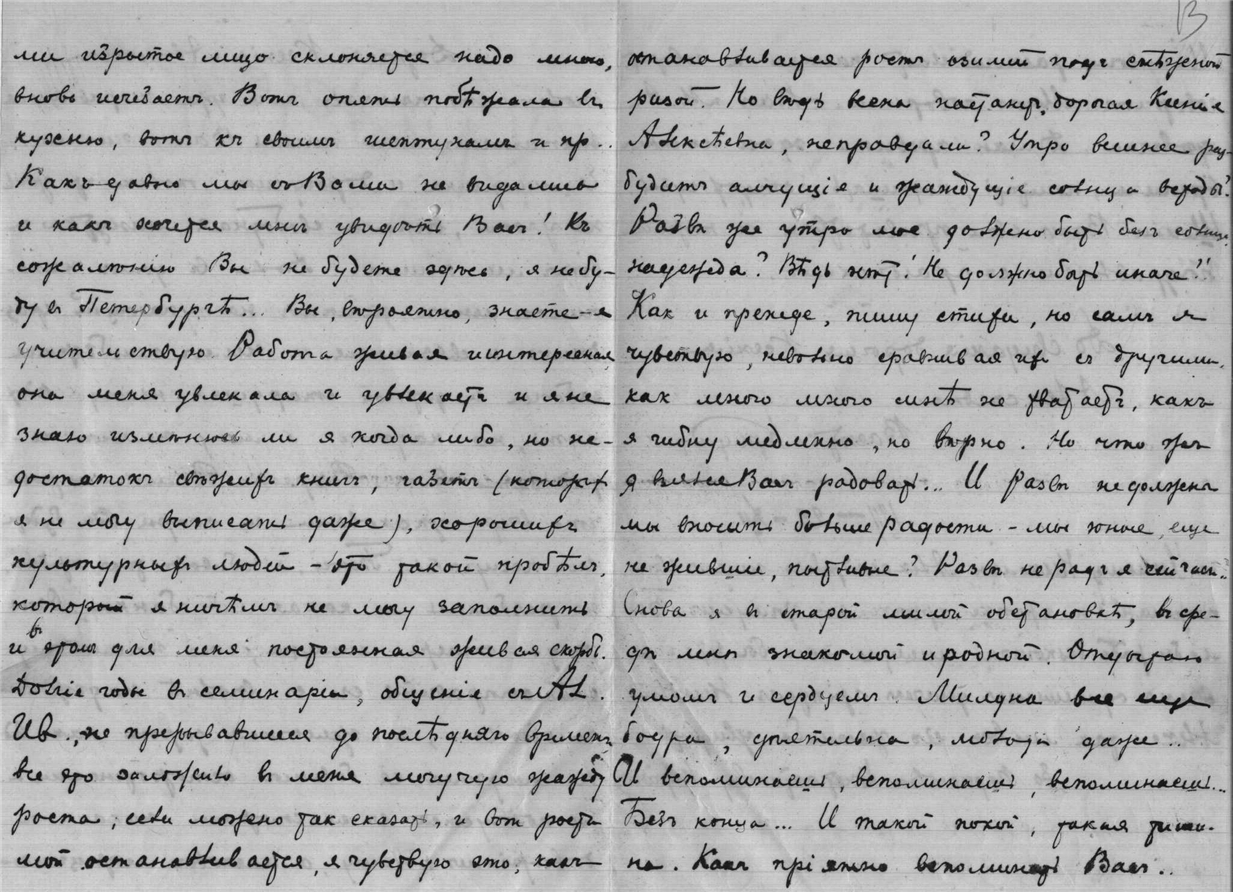 ми изрытое лицо склоняется надо мною,
вновь исчезаетъ. Вотъ опять побѣжала въ
кухню, вотъ къ своимъ шептунамъ и пр..
Какъ давно мы съ Вами не видались
и какъ хочется мнѣ увидѣть Васъ! Къ
сожалѣнію Вы не будете здѣсь, я не бу-
ду въ Петербургѣ... Вы, вѣроятно, знаете - я
учительствую. Работа живая и интересная,
она меня увлекала и увлекаетъ и я не
знаю измѣнюсь ли я когда либо, но не-
достатокъ свѣжихъ книгъ, газетъ (которыхъ
я не могу выписать даже), хорошихъ
культурныхъ людей - это такой пробѣлъ,
который я ничѣмъ не могу заполнить
и въ этомъ для меня постоянная живая скорбь.
Долгіе годы въ семинаріи, общеніе съ Ал.
Ив., не прерывавшееся до послѣдняго времени,
все это заложило въ меня могучую жажду
роста, если можно так сказать, и вот ростъ
мой останавливается, я чувствую это, какъ
останавливается ростъ озимей подъ снѣжной
ризой. Но вѣдь весна настанетъ, дорогая Ксенія
Алексѣевна, неправда ли? Утро вешнее раз-
будитъ алчущіе и жаждущіе солнца всходы?
Развѣ же утро мое должно быть безъ солнца,
надежда? Вѣдь нѣтъ! Не должно быть иначе!!
Как и прежде, пишу стихи, но самъ я
чувствую, невольно сравнивая их съ другими,
как много много мнѣ не хватаетъ, какъ
я гибну медленно, но вѣрно. Но что жъ
я Васъ радовать... И развѣ не должны
мы вносить больше радости - мы юные, еще
не жившіе, пытливые? Развѣ не радъ я сейчасъ..
Снова я въ старой милой обстановкѣ, въ сре-
дѣ мнѣ знакомой и родной. Отдыхаю
умомъ и сердцемъ. все еще
бодра, дѣятельна, молода даже..
И вспоминаешь, вспоминаешь, вспоминаешь...
Безъ конца... И такой покой, такая тиши-
на. Какъ пріятно вспоминать Васъ..